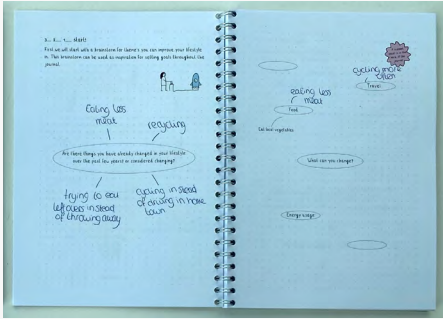 3... 2... 1... start!
First we will start with a brainstorm for theme's you can improve your lifestyle
in. This brainstorm can be used as inspiration for setting goals throughout the
journal.
Eating less
meat
recycling
Are there things you have already changed in your lifestyle
over the past few years or considered changing?
trying to eat
leftovers instead
of throwing away
cycling instead
of driving in home
town
cycling more
often
Travel
eating less
meat
Food
Eat more vegetables
What can you change?
Energy usage